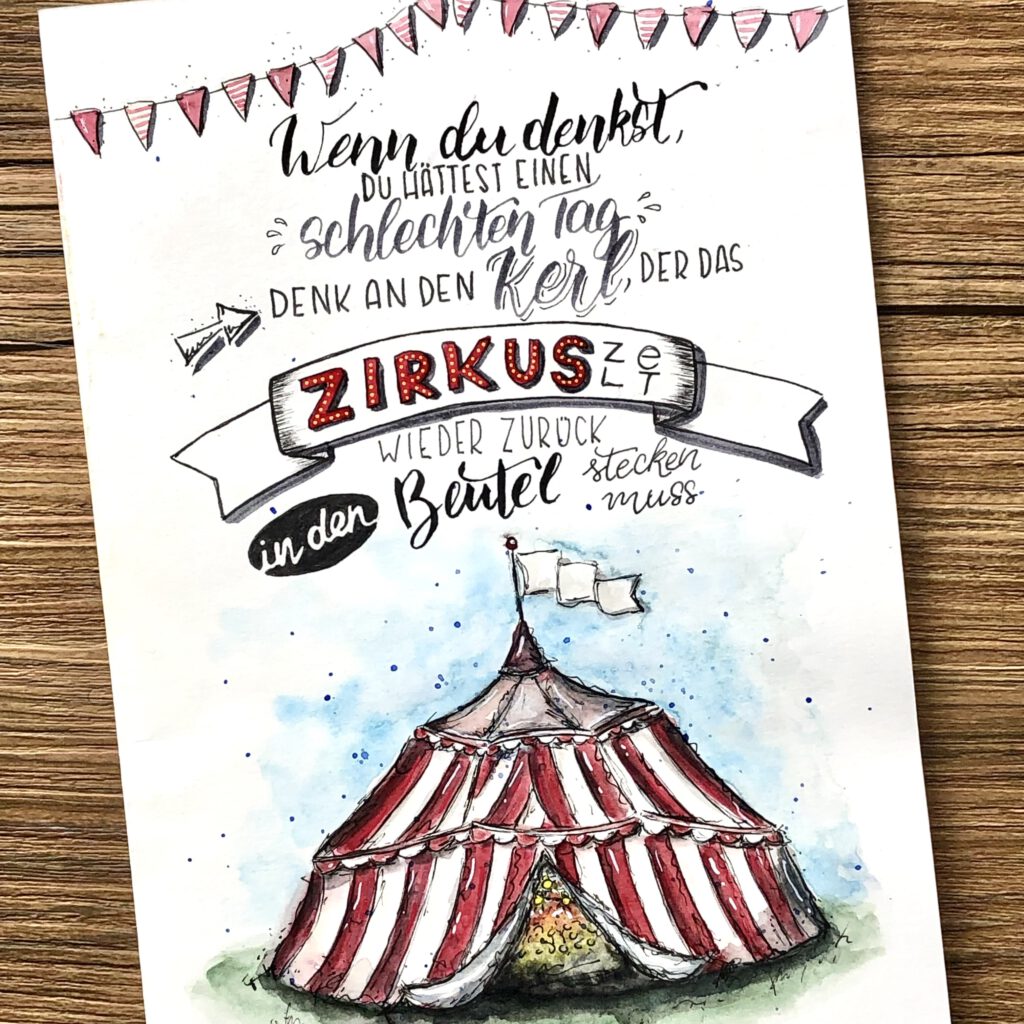 Wenn du denkst,
DU HÄTTEST EINEN
schlechten Tag
DENK AN DEN Kerl, DER DAS
ZIRKUSZeLT
WIEDER ZURÜCK
in den Beutel stecken
muss